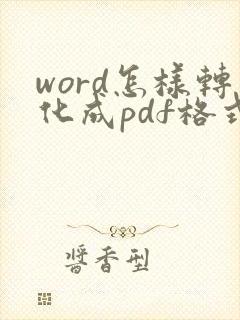 word怎樣轉
化成pdf格式
醬香型